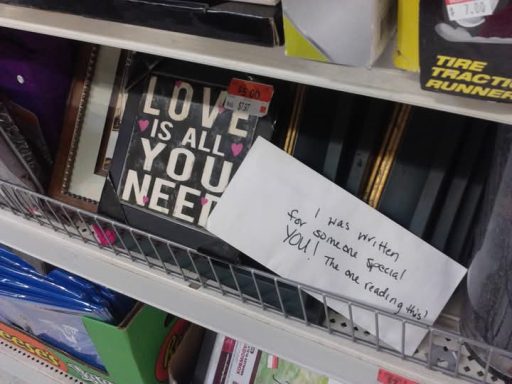 7.00
TIRE
TRACTI
RUNNER
$5.00
LOVE
IS ALL
YOU
NEED
I was written
for someone special
YOU! The one reading this!
Reese's